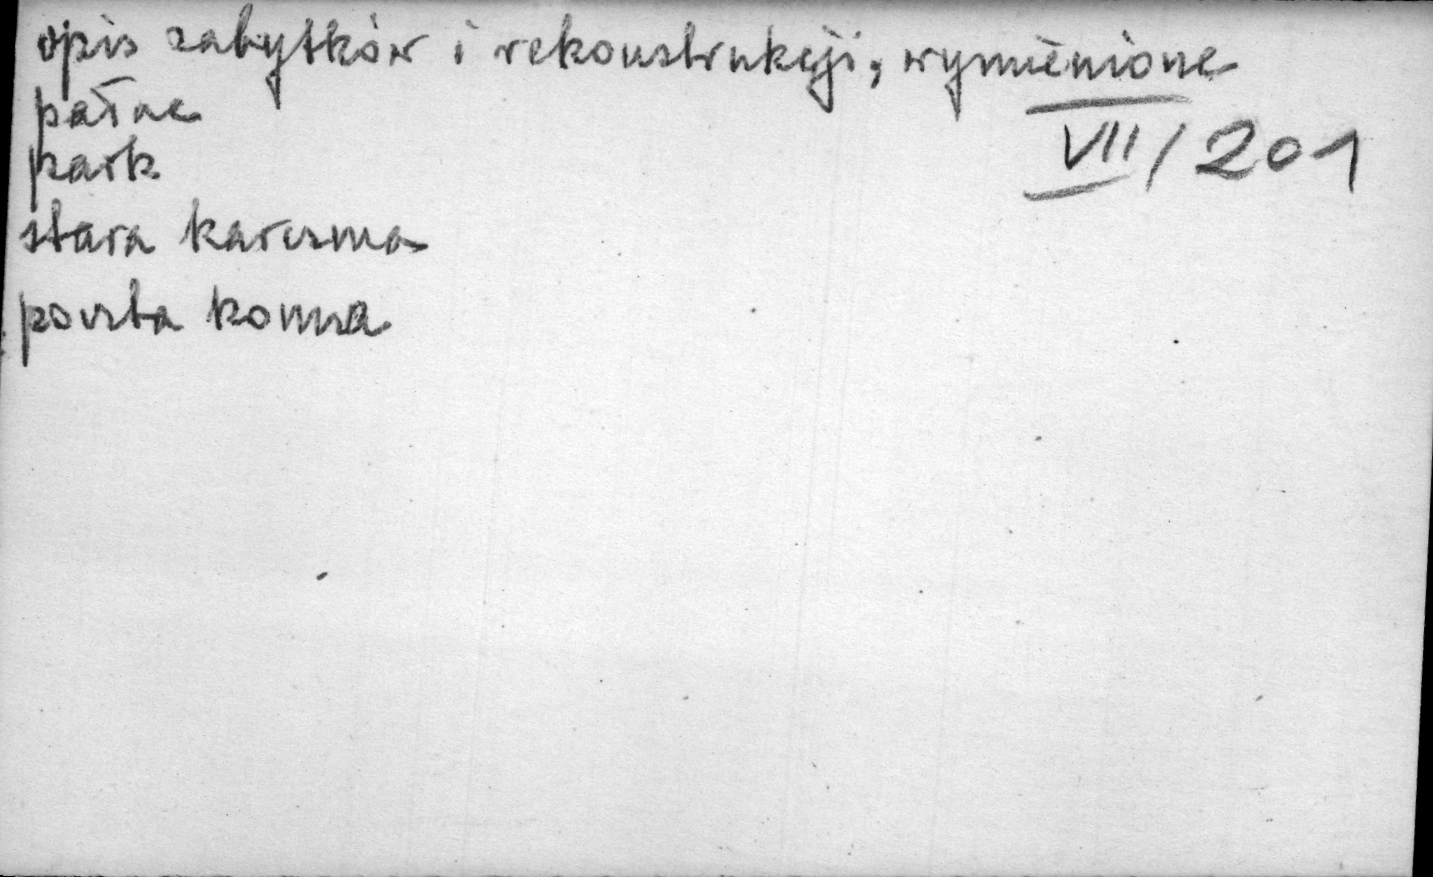 opis zabytków i rekonstrukcji, wymienione
pałac
park
VII/201
stara karczma
poczta konna